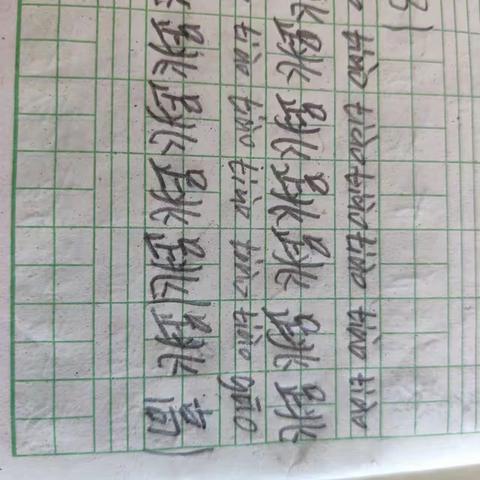 tiào tiào tiào tiào tiào tiào
跳 跳 跳 跳 跳 跳
tiào tiào tiào tiào tiào gāo
跳 跳 跳 跳(跳 高)